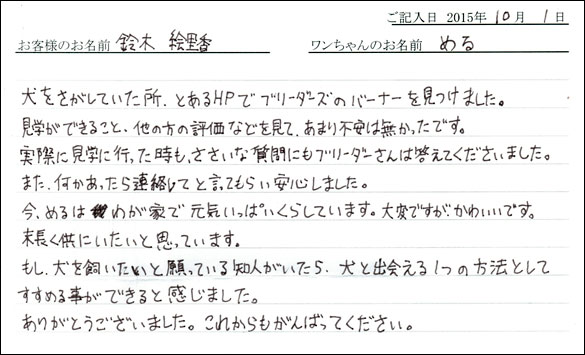 ご記入日 2015年 10月 1日
お客様のお名前 鈴木 絵里香 ワンちゃんのお名前 める
犬をさがしていた所、とあるHPでブリーダーズのバーナーを見つけました。
見学ができること、他の方の評価などを見て、あまり不安は無かったです。
実際に見学に行った時も、ささいな質問にもブリーダーさんは答えてくださいました。
また、何かあったら連絡してと言ってもらい安心しました。
今、めるはわが家で元気いっぱいくらしています。大変ですがかわいいです。
末長く供にいたいと思っています。
もし、犬を飼いたいと願っている知人がいたら、犬と出会える1つの方法として
すすめる事ができると感じました。
ありがとうございました。これからもがんばってください。